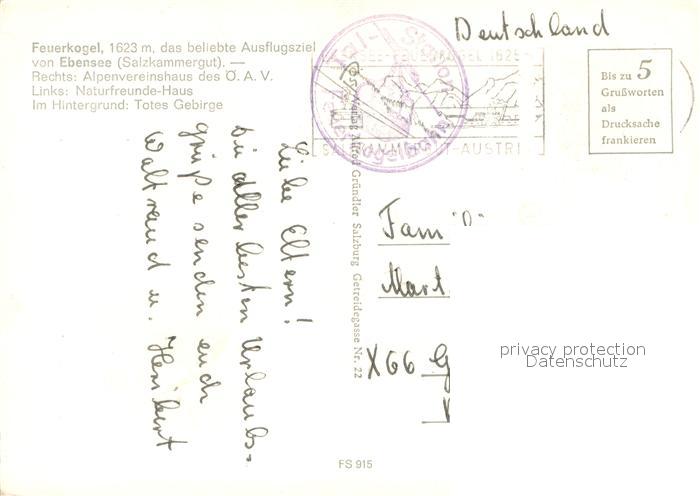 Feuerkogel, 1623 m, das beliebte Ausflugsziel
von Ebensee (Salzkammergut). —
Rechts: Alpenvereinshaus des Ö. A. V.
Links: Naturfreunde-Haus
Im Hintergrund: Totes Gebirge
Deutschland
Bis zu 5
Grußworten
als
Drucksache
frankieren
Liebe Eltern!
Die allerbesten Urlaubs-
grüße senden euch
Waltraud u. Heribert
Verlag Alfred Gründler Salzburg Getreidegasse Nr. 22
Fam "D"
Mart
X66 G
privacy protection
Datenschutz
FS 915